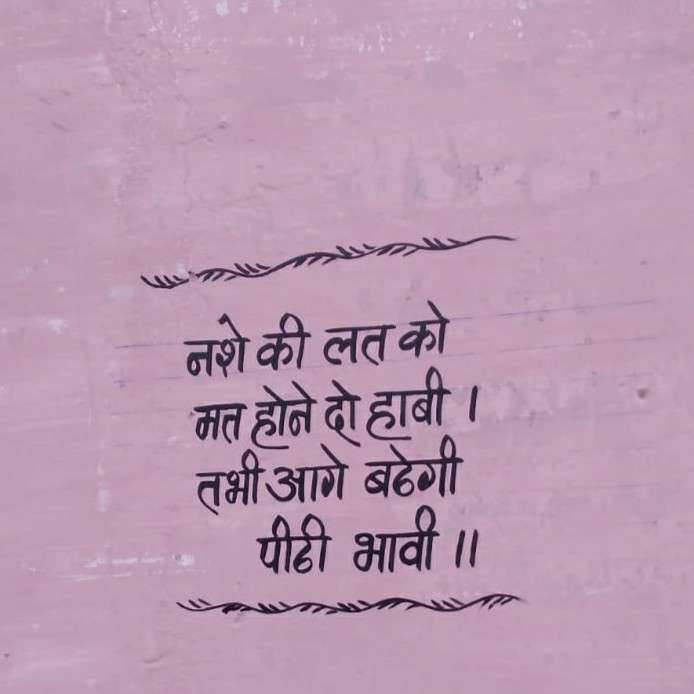 नशे की लत को
मत होने दो हाबी ।
तभी आगे बढेगी
पीढी भावी ॥